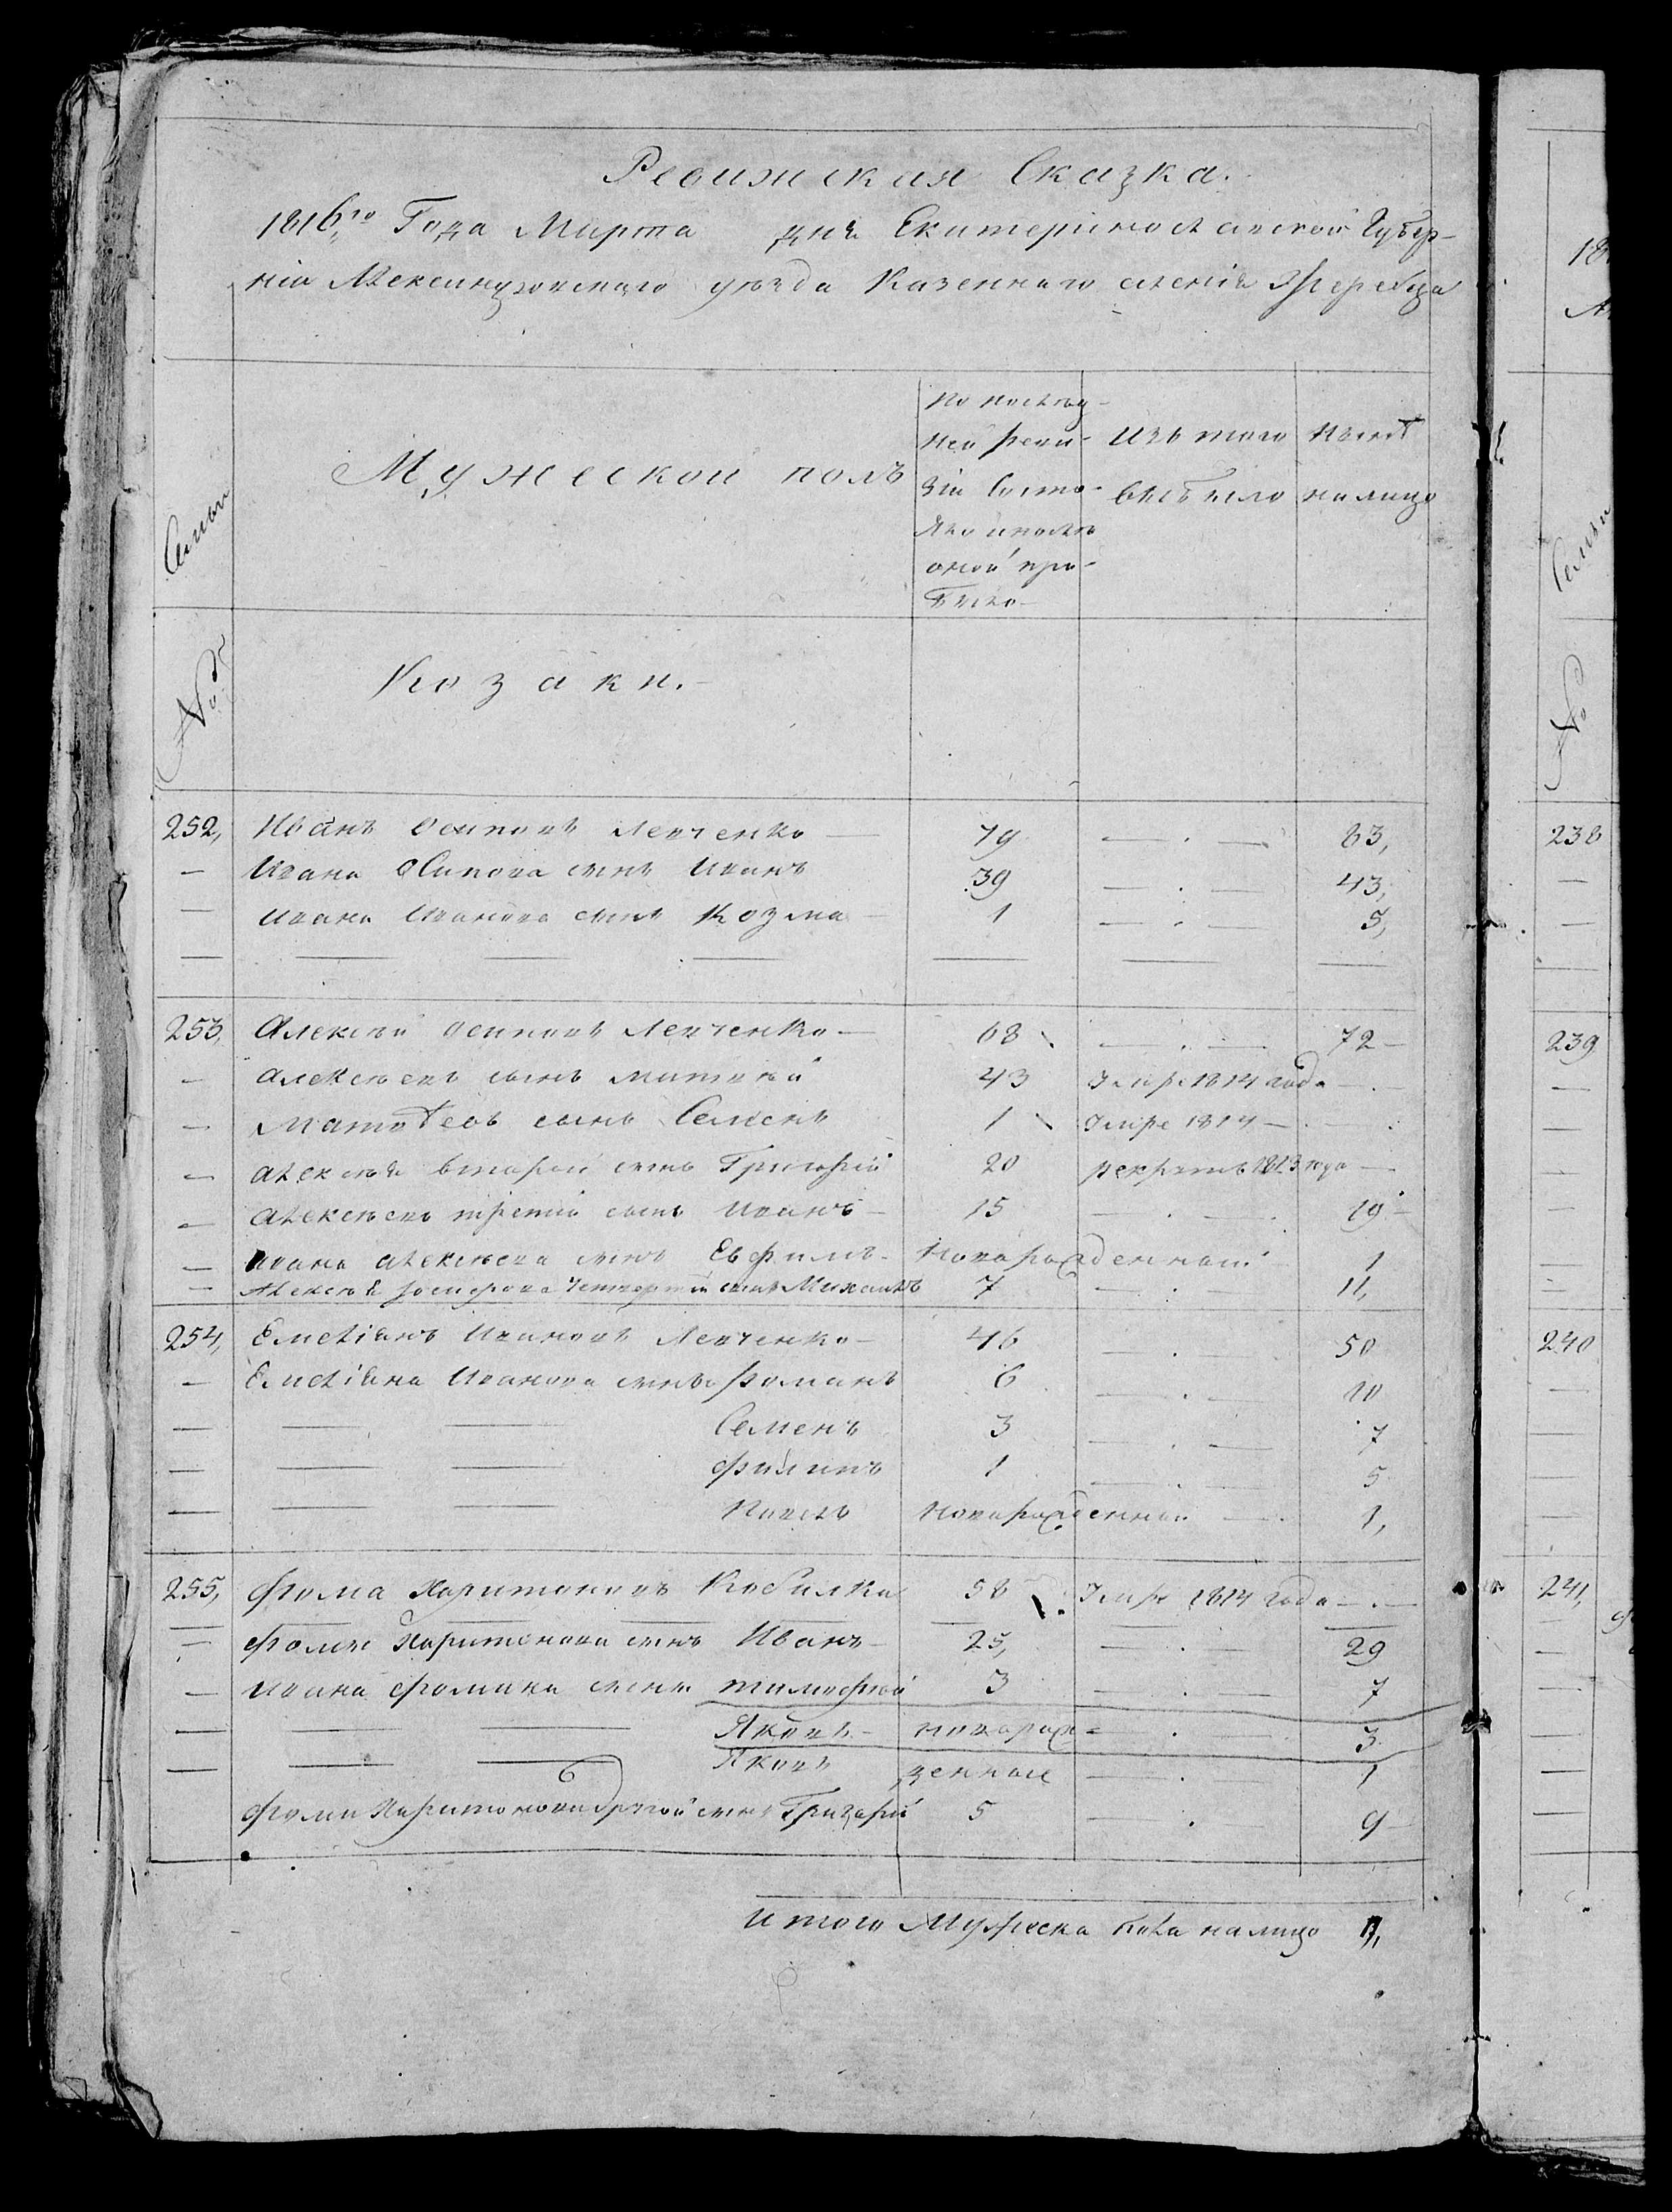 Ревижская Сказка.
1816го Года Марта дня Екатеринославской Губер-
ніи Александровскаго уѣзда Казеннаго селенія Жеребца
Семьи
Мужеской полъ
По послѣд-
ней реви-
зіи состо-
яло и послѣ
оной при-
было
Изъ того
выбыло
Нынѣ
на лицо
№
Козаки.
252, Иванъ Осиповъ Левченко — 79 — . — 83,
— Ивана Осипова сынъ Иванъ 39 — . — 43,
— Ивана Иванова сынъ Козма 1 — . — 5,
253, Алексѣй Осиповъ Левченко — 68 — . — 72 —
— Алексѣевъ сынъ Матвѣй 43 Умре 1814 года — . —
— Матвѣевъ сынъ Семенъ 1 Умре 1814 — . —
— Алексѣя второй сынъ Григорій 20 рекрутъ 1813 года —
— Алексѣевъ третій сынъ Иванъ — 15 — . — 19 —
— Ивана Алексѣева сынъ Евфимъ — Новорожденный 1
— Алексѣя четвертый сынъ Михаилъ 7 — . — 11,
254, Емеліянъ Ивановъ Левченко — 46 — . — 50
— Емеліяна Иванова сынъ Романъ 6 — . — 10
— — — Семенъ 3 — . — 7
— — — Филипъ 1 — . — 5
— — — Павелъ Новорожденный — 1,
255, Фома Харитоновъ Кобилка 58 Умре 1814 года — . —
— Фомы Харитонова сынъ Иванъ — 25, — . — 29
— Ивана Фомина сынъ Тимофѣй 3 — . — 7
— — — Яковъ — новорож= — . — 3
— — — Яковъ денные — . — 1
Фомы Харитонова другой сынъ Григорій 5 — . — 9
Итого Мужеска пола на лицо
18
А
Семьи
№
238
239
240
241,